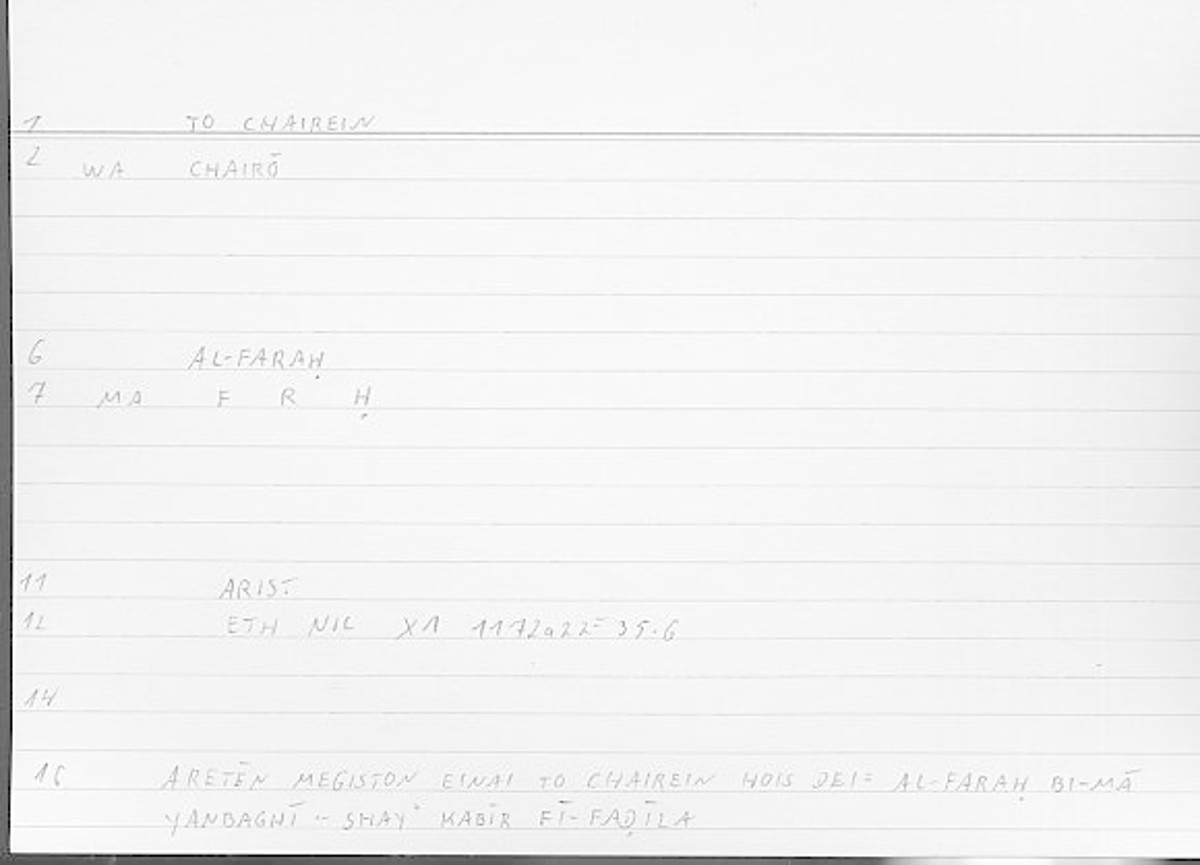 1 TO CHAIREIN
2 WA CHAIRŌ
6 AL-FARAḤ
7 MA F R Ḥ
11 ARIST
12 ETH NIC X1 1172a22- 35.6
14
16 ARETĒN MEGISTON EINAI TO CHAIREIN HOIS DEI= AL-FARAḤ BI-MĀ
YANBAGHĪ -- SHAY' KABĪR FĪ-FAḌĪLA